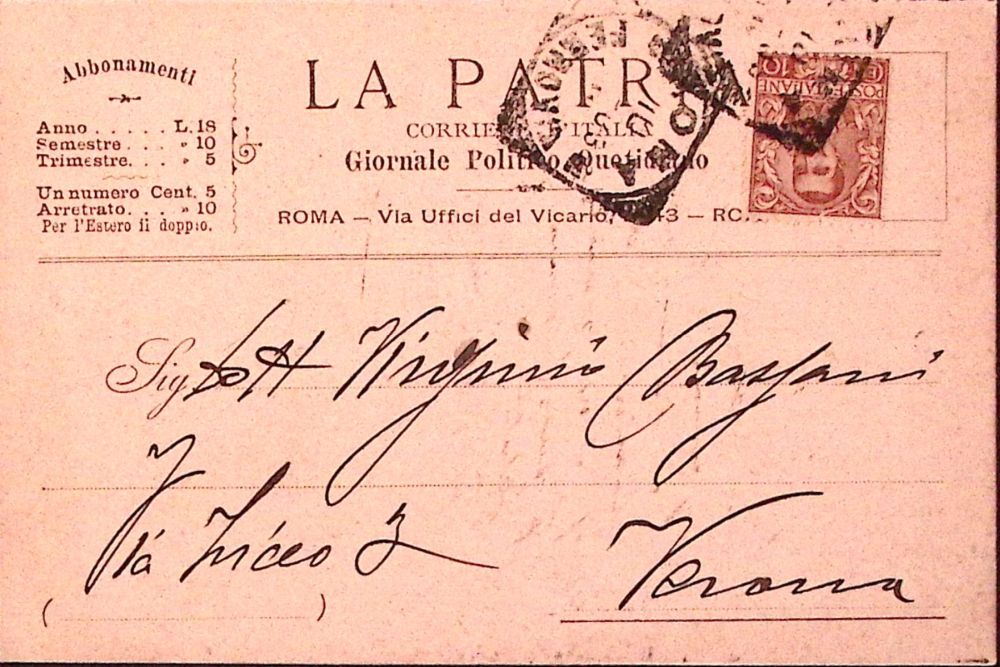 Abbonamenti
Anno . . . . . L. 18
Semestre . . . » 10
Trimestre. . . » 5
Un numero Cent. 5
Arretrato. . . » 10
Per l'Estero il doppio.
LA PATRIA
CORRIERE D'ITALIA
Giornale Politico Quotidiano
ROMA — Via Uffici del Vicario, 43 —
POSTE ITALIANE
C. 10
ROMA
FERROVIA
Sig Dott Virginio Bassani
Via Liceo 3
Verona
( )